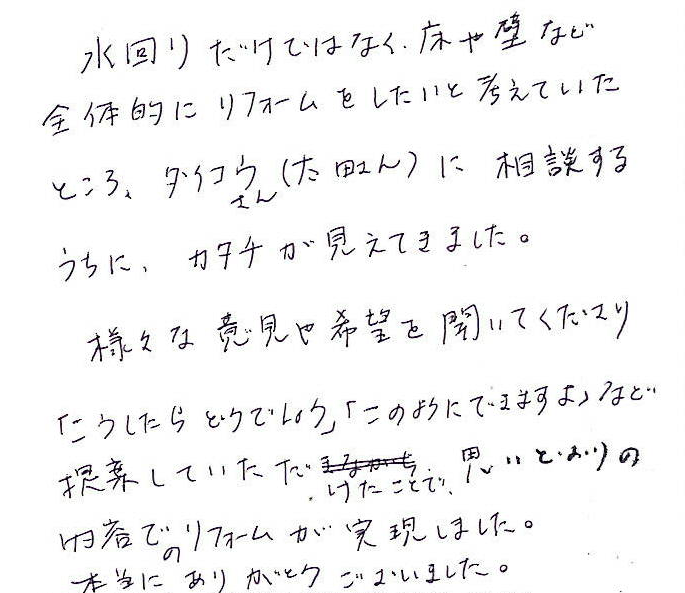 水回りだけではなく、床や壁など
全体的にリフォームをしたいと考えていた
ところ、ダイコウさん(太田さん)に相談する
うちに、カタチが見えてきました。
様々な意見や希望を聞いてくださり
「こうしたらどうでしょう」「このようにできますよ」など
提案していただけたことで、思いどおりの
内容でのリフォームが実現しました。
本当にありがとうございました。